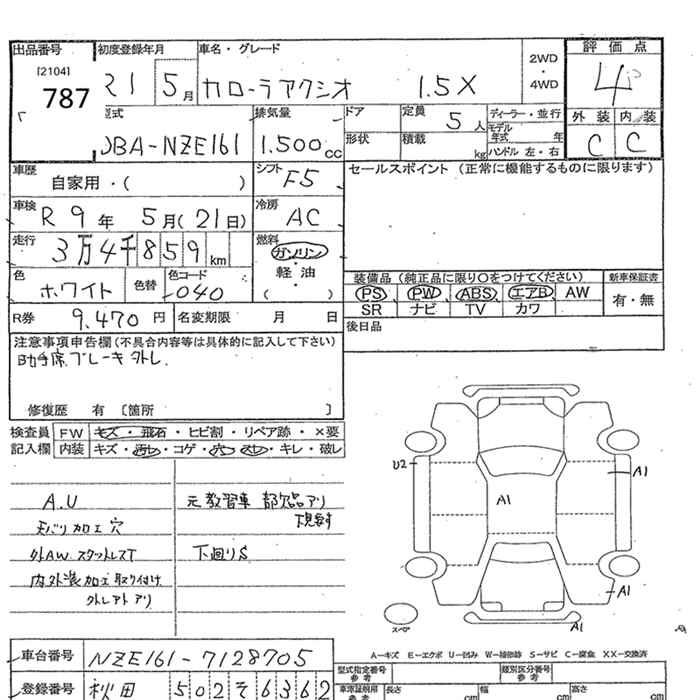 出品番号 初度登録年月 車名・グレード 2WD・4WD 評価点
[2104]
787 R1 5月 カローラアクシオ 1.5X 4
型式 排気量 ドア 定員 5人 ディーラー・並行 外装 内装
DBA-NZE161 1.500cc 形状 積載 kg モデル年式 年 ハンドル 左・右 C C
車歴 シフト セールスポイント (正常に機能するものに限ります)
自家用・( ) F5
車検 R9年 5月(21日) 冷房 AC
走行 3万4千859km 燃料 ガソリン・軽油 ( )
色 ホワイト 色替 色コード 040
装備品 (純正品に限り○をつけてください) 新車保証書
PS PW ABS エアB AW 有・無
SR ナビ TV カワ
R券 9.470円 名変期限 月 日 後日品
注意事項申告欄(不具合内容等は具体的に記入して下さい)
助手席ブレーキ外し
修復歴 有 〔箇所 〕
検査員記入欄 FW キズ・飛石・ヒビ割・リペア跡・×要
内装 キズ・汚れ・コゲ・穴・スレ・キレ・破レ
A.U 元教習車 部欠品アリ
天バリ加工穴 下回S
外AWスタットレスT
内外装加工取り付け
外しアトアリ
U2 A1 A1 A1
スペア
A-キズ E-エクボ U-凹み W-補修跡 S-サビ C-腐食 XX-交換済
車台番号 NZE161-7128705 型式指定番号 参考 類別区分番号 参考
登録番号 秋田 502 そ 6362 車庫証明用 参考 長さ cm 幅 cm 高さ cm